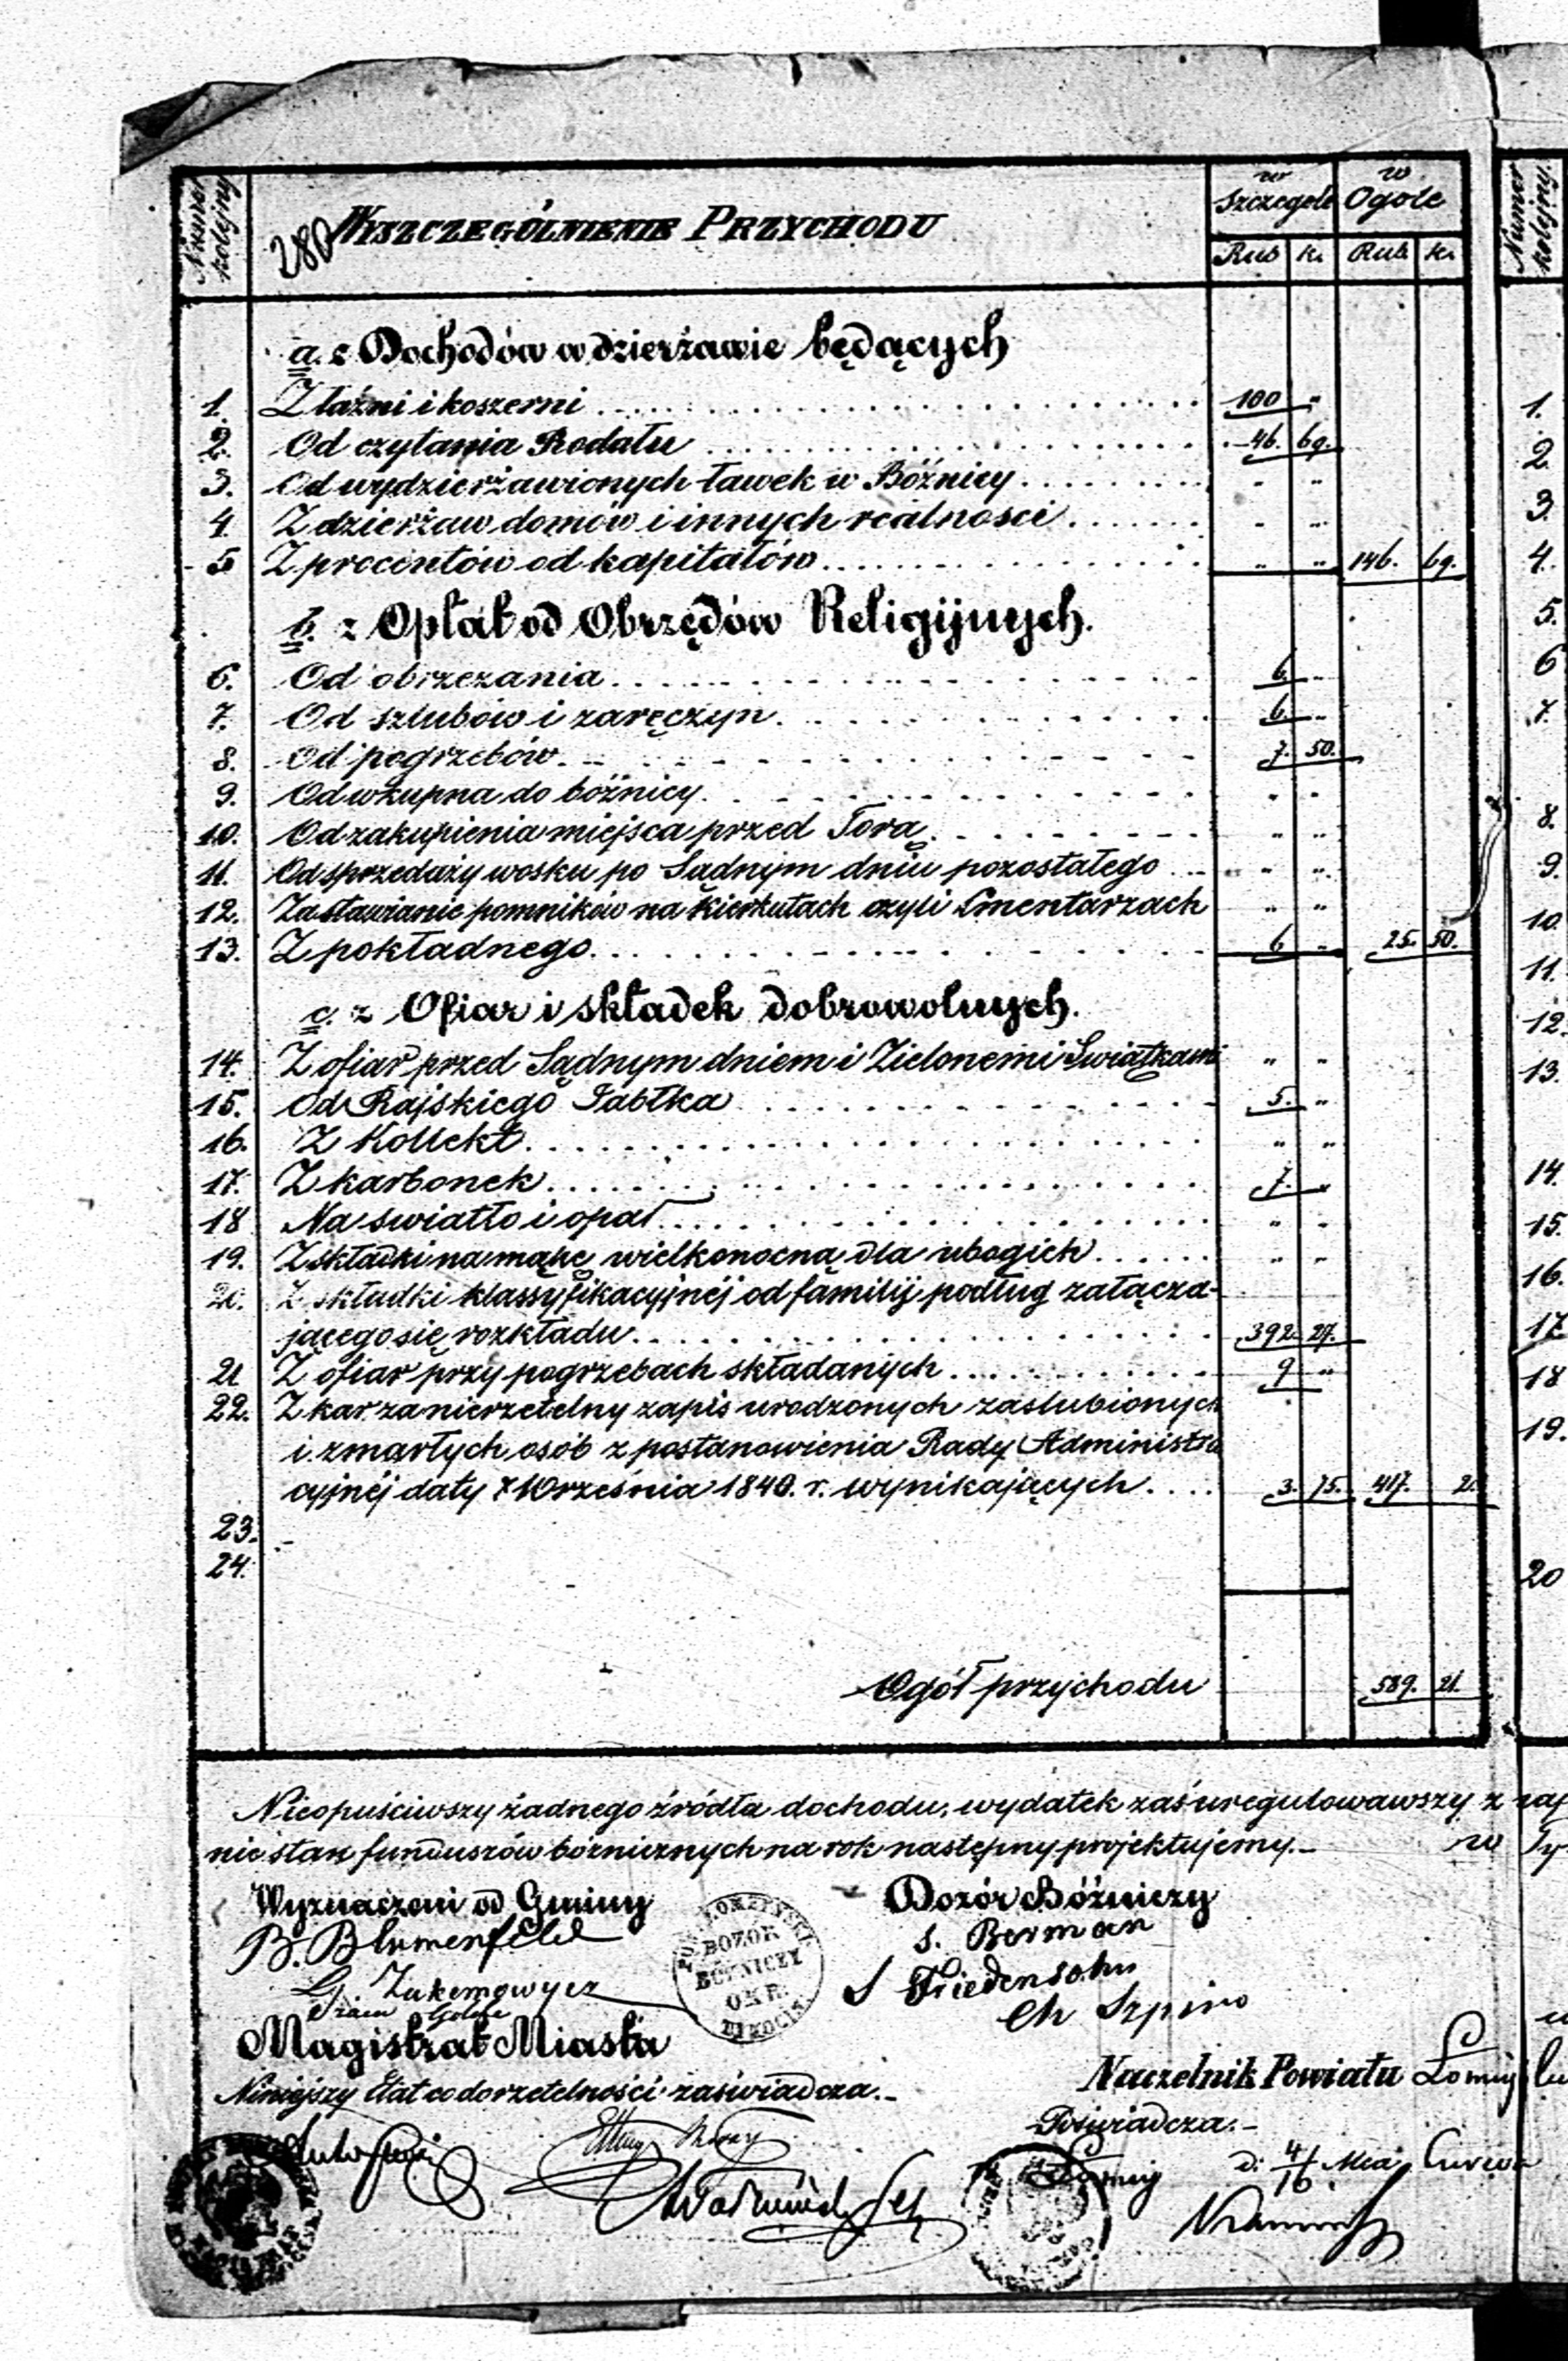 Numer kolejny
280
WYSZCZEGÓLNIENIE PRZYCHODU
w szczególe
w Ogóle
Rub k. Rub. k.
a. z Dochodów w dzierżawie będących
1. Z łaźni i koszerni 100 „
2. Od czytania Rodału 46. 69.
3. Od wydzierżawionych ławek w Bóźnicy „ „
4. Z dzierżaw domów i innych realności „ „
5 Z procentów od kapitałów „ „ 146. 69.
b. z Opłat od Obrzędów Religijnych.
6. Od obrzezania 6. „
7. Od szlubów i zaręczyn 6. „
8. Od pogrzebów 7. 50.
9. Od wkupna do bóźnicy „ „
10. Od zakupienia miejsca przed Torą „ „
11. Od sprzedaży wosku po Sądnym dniu pozostałego „ „
12. Za stawianie pomników na kierkutach czyli Smentarzach „ „
13. Z pokładnego 6 „ 25. 50.
c. z Ofiar i składek dobrowolnych.
14. Z ofiar przed Sądnym dniem i Zielonemi Swiątkami „ „
15. Od Rajskiego Jabłka 5. „
16. Z Kollekt „ „
17. Z karbonek 7. „
18 Na swiatło i opał „ „
19. Z składki na mąkę wielkonocną dla ubogich „ „
20. Z składki klassyfikacyjnéj od familij podług załącza-
jącego się rozkładu 392. 27.
21 Z ofiar przy pogrzebach składanych 9 „
22. Z kar za nierzetelny zapis urodzonych zaslubionych
i zmarłych osób z postanowienia Rady Administra
cyjnéj daty 7 Września 1840. r. wynikających 3. 75. 417. 2.
23.
24.
Ogół przychodu 589. 21.
Nieopuściwszy żadnego źródła dochodu, wydatek zaś uregulowawszy z
nie stan funduszów bóżnicznych na rok następny projektujemy.
w
Wyznaczeni od Gminy
Dozór Bóżniczy
B. Blumenfeld
S. Berman
S Friedensohn
Ch Szpiro
DOZÓR BÓŻNICZY OKR.
Magistrat Miasta
Niniejszy Etat co do rzetelności zaświadcza.
Naczelnik Powiatu Łomży
Poświadcza.
d. 4/16 Maja
Numer kolejny.
1.
2.
3.
4.
5.
6
7.
8.
9.
10.
11.
12.
13.
14.
15.
16.
17.
18
19.
20